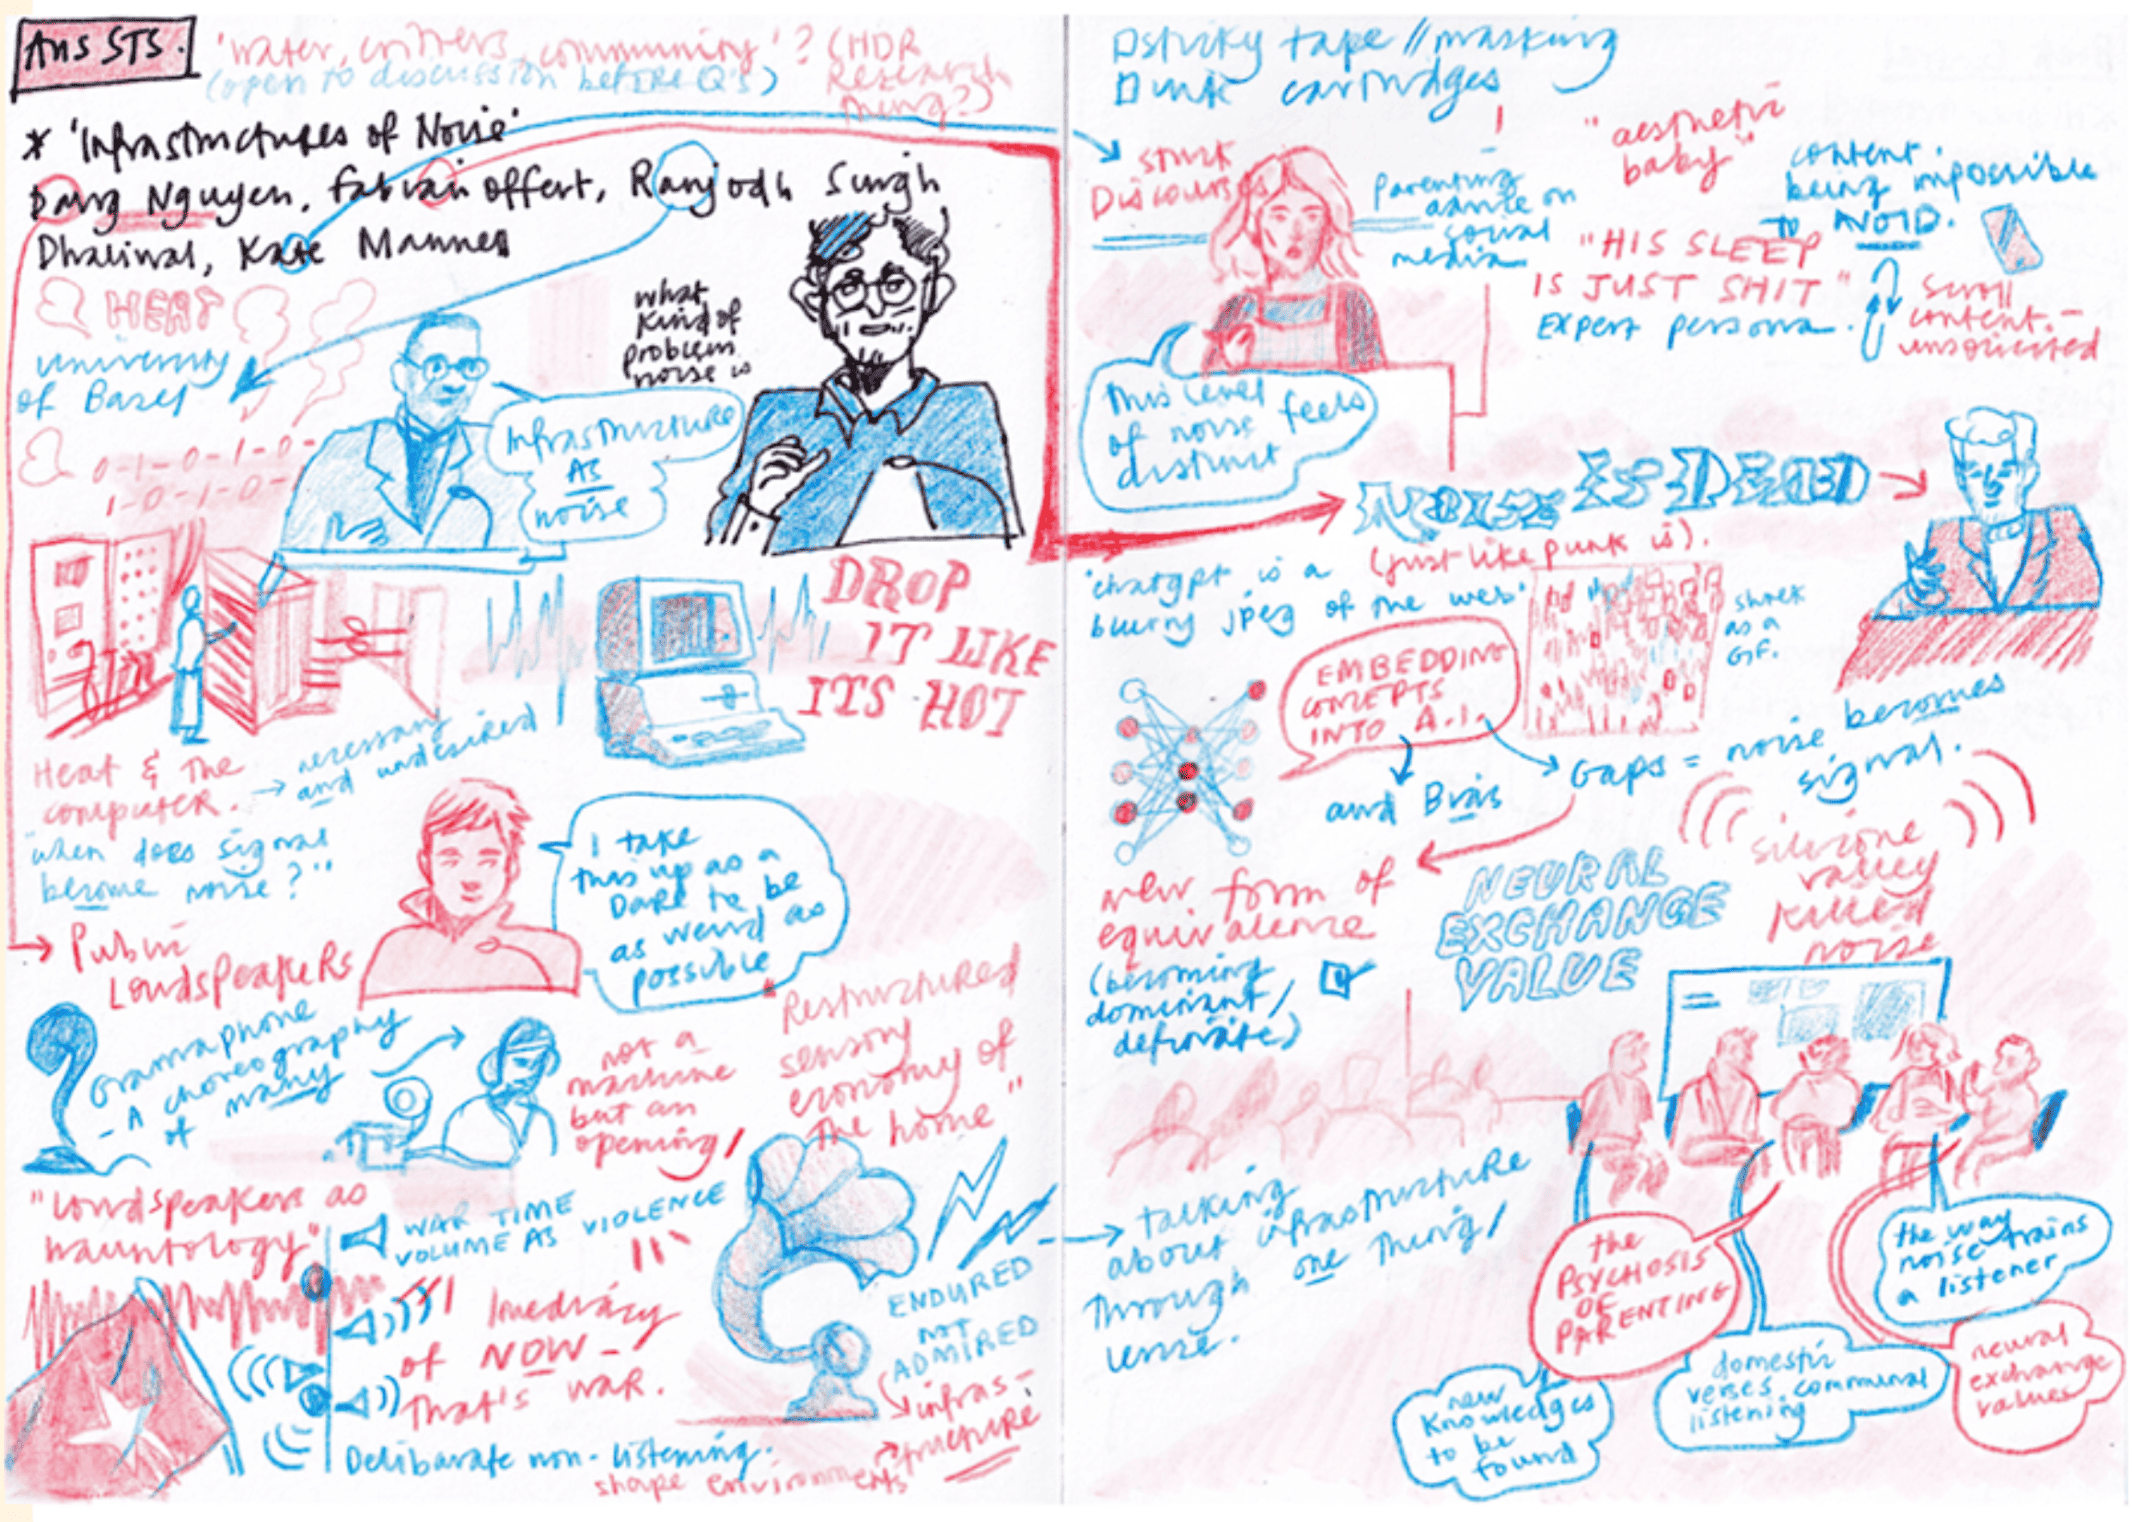 Aus STS.
'water, critters, community'? (HDR
Research
thing?)
(open to discussion before Q's)
* 'Infrastructures of Noise'
Dang Nguyen, Fabian Offert, Ranjodh Singh
Dhaliwal, Kate Mannes
HEAT
University
of Basel
0-1-0-1-0-
1-0-1-0-
what
kind of
problem
noise is
Infrastructure
AS
noise
DROP
IT LIKE
ITS HOT
Heat & the
computer.
→ necessary
and undesired
"when does signal
become noise?"
I take
this up as a
DARE to be
as weird as
possible
→ Public
LOUDSPEAKERS
Gramaphone
- A choreography
of many
not a
machine
but an
opening/
"Restructured
sensory
economy of
the home"
"Loudspeakers as
hauntology"
WAR TIME
VOLUME AS VIOLENCE
Imediacy
of NOW -
That's war.
ENDURED
NOT
ADMIRED
infras-
tructure
Deliberate non-listening.
shape environments
sticky tape // masking
ink cartridges
stuck
Discourses
parenting
advice on
social
media
"aesthetic
baby"
content
being impossible
to AVOID.
"HIS SLEEP
IS JUST SHIT"
Expert persona.
scroll
content -
unsolicited
This level
of noise feels
distinct
NOISE IS DEAD
(just like punk is).
'chatgpt is a
blurry jpeg of the web'
as a
GIF.
EMBEDDING
CONCEPTS
INTO A.I.
and Bias
Gaps = noise becomes
signal.
new form of
equivalence
(becoming
dominant/
NEURAL
EXCHANGE
VALUE
silicone
valley
killed
noise
→ talking
about infrastructure
through one thing/
the
PSYCHOSIS
OF
PARENTING
the way
noise trains
a listener
new
knowledges
to be
found
domestic
verses communal
listening
neural
exchange
values